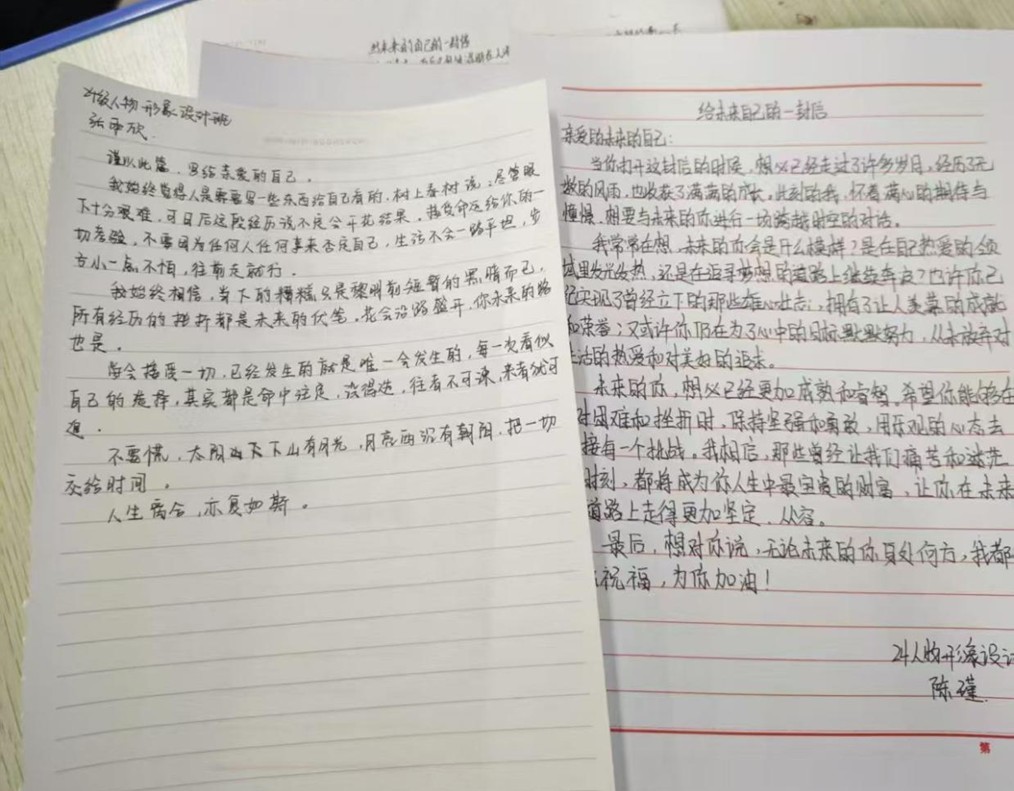 给未来的自己的一封信
24级人物形象设计班
张雨欣
谨以此篇，写给亲爱的自己。
我始终觉得人是需要写一些东西给自己看的，村上春树说：尽管眼
下十分艰难，可日后这段经历说不定会开花结果。接受命运给你的一
切考验，不要因为任何人任何事来否定自己，生活不会一路平坦，步
立小一点不怕，往前走就行。
我始终相信，当下的糟糕只是黎明前短暂的黑暗而已，
所有经历的挫折都是未来的伏笔，花会沿路盛开，你未来的路
也是。
学会接受一切，已经发生的就是唯一会发生的，每一次看似
自己的选择，其实都是命中注定，该得达，往者不可谏，来者犹可
追。
不要慌，太阳下山有月光，月亮西沉有朝阳，把一切
交给时间。
人生离合，亦复如斯。
给未来自己的一封后
亲爱的未来的自己：
当你打开这封后的时候，想必已经走过了许多岁月，经历了无
数的风雨，也收获了满满的成长，此刻的我，怀着满心的期待与
憧憬，想要与未来的你进行一场跨越时空的对话。
我常常在想，未来的你会是什么模样？是在自己热爱的领
域里发光发热，还是在追寻梦想的道路上继续奔波？也许你已
经实现了曾经立下的那些雄心壮志，拥有了让人羡慕的成就
和荣誉；又或许你仍在为了心中的目标默默努力，从未放弃对
生活的热爱和对美好的追求。
未来的你，想必已经更加成熟和睿智。希望你能够在
对困难和挫折时，保持坚强和勇敢，用乐观的心态去
接有一个挑战。我相信，那些曾经让我们痛苦和迷茫
时刻，都将成为你人生中最宝贵的财富，让你在未来
道路上走得更加坚定、从容。
最后，想对你说，无论未来的你身处何方，我都
祝福，为你加油！
24人物形象设计
陈瑾
第